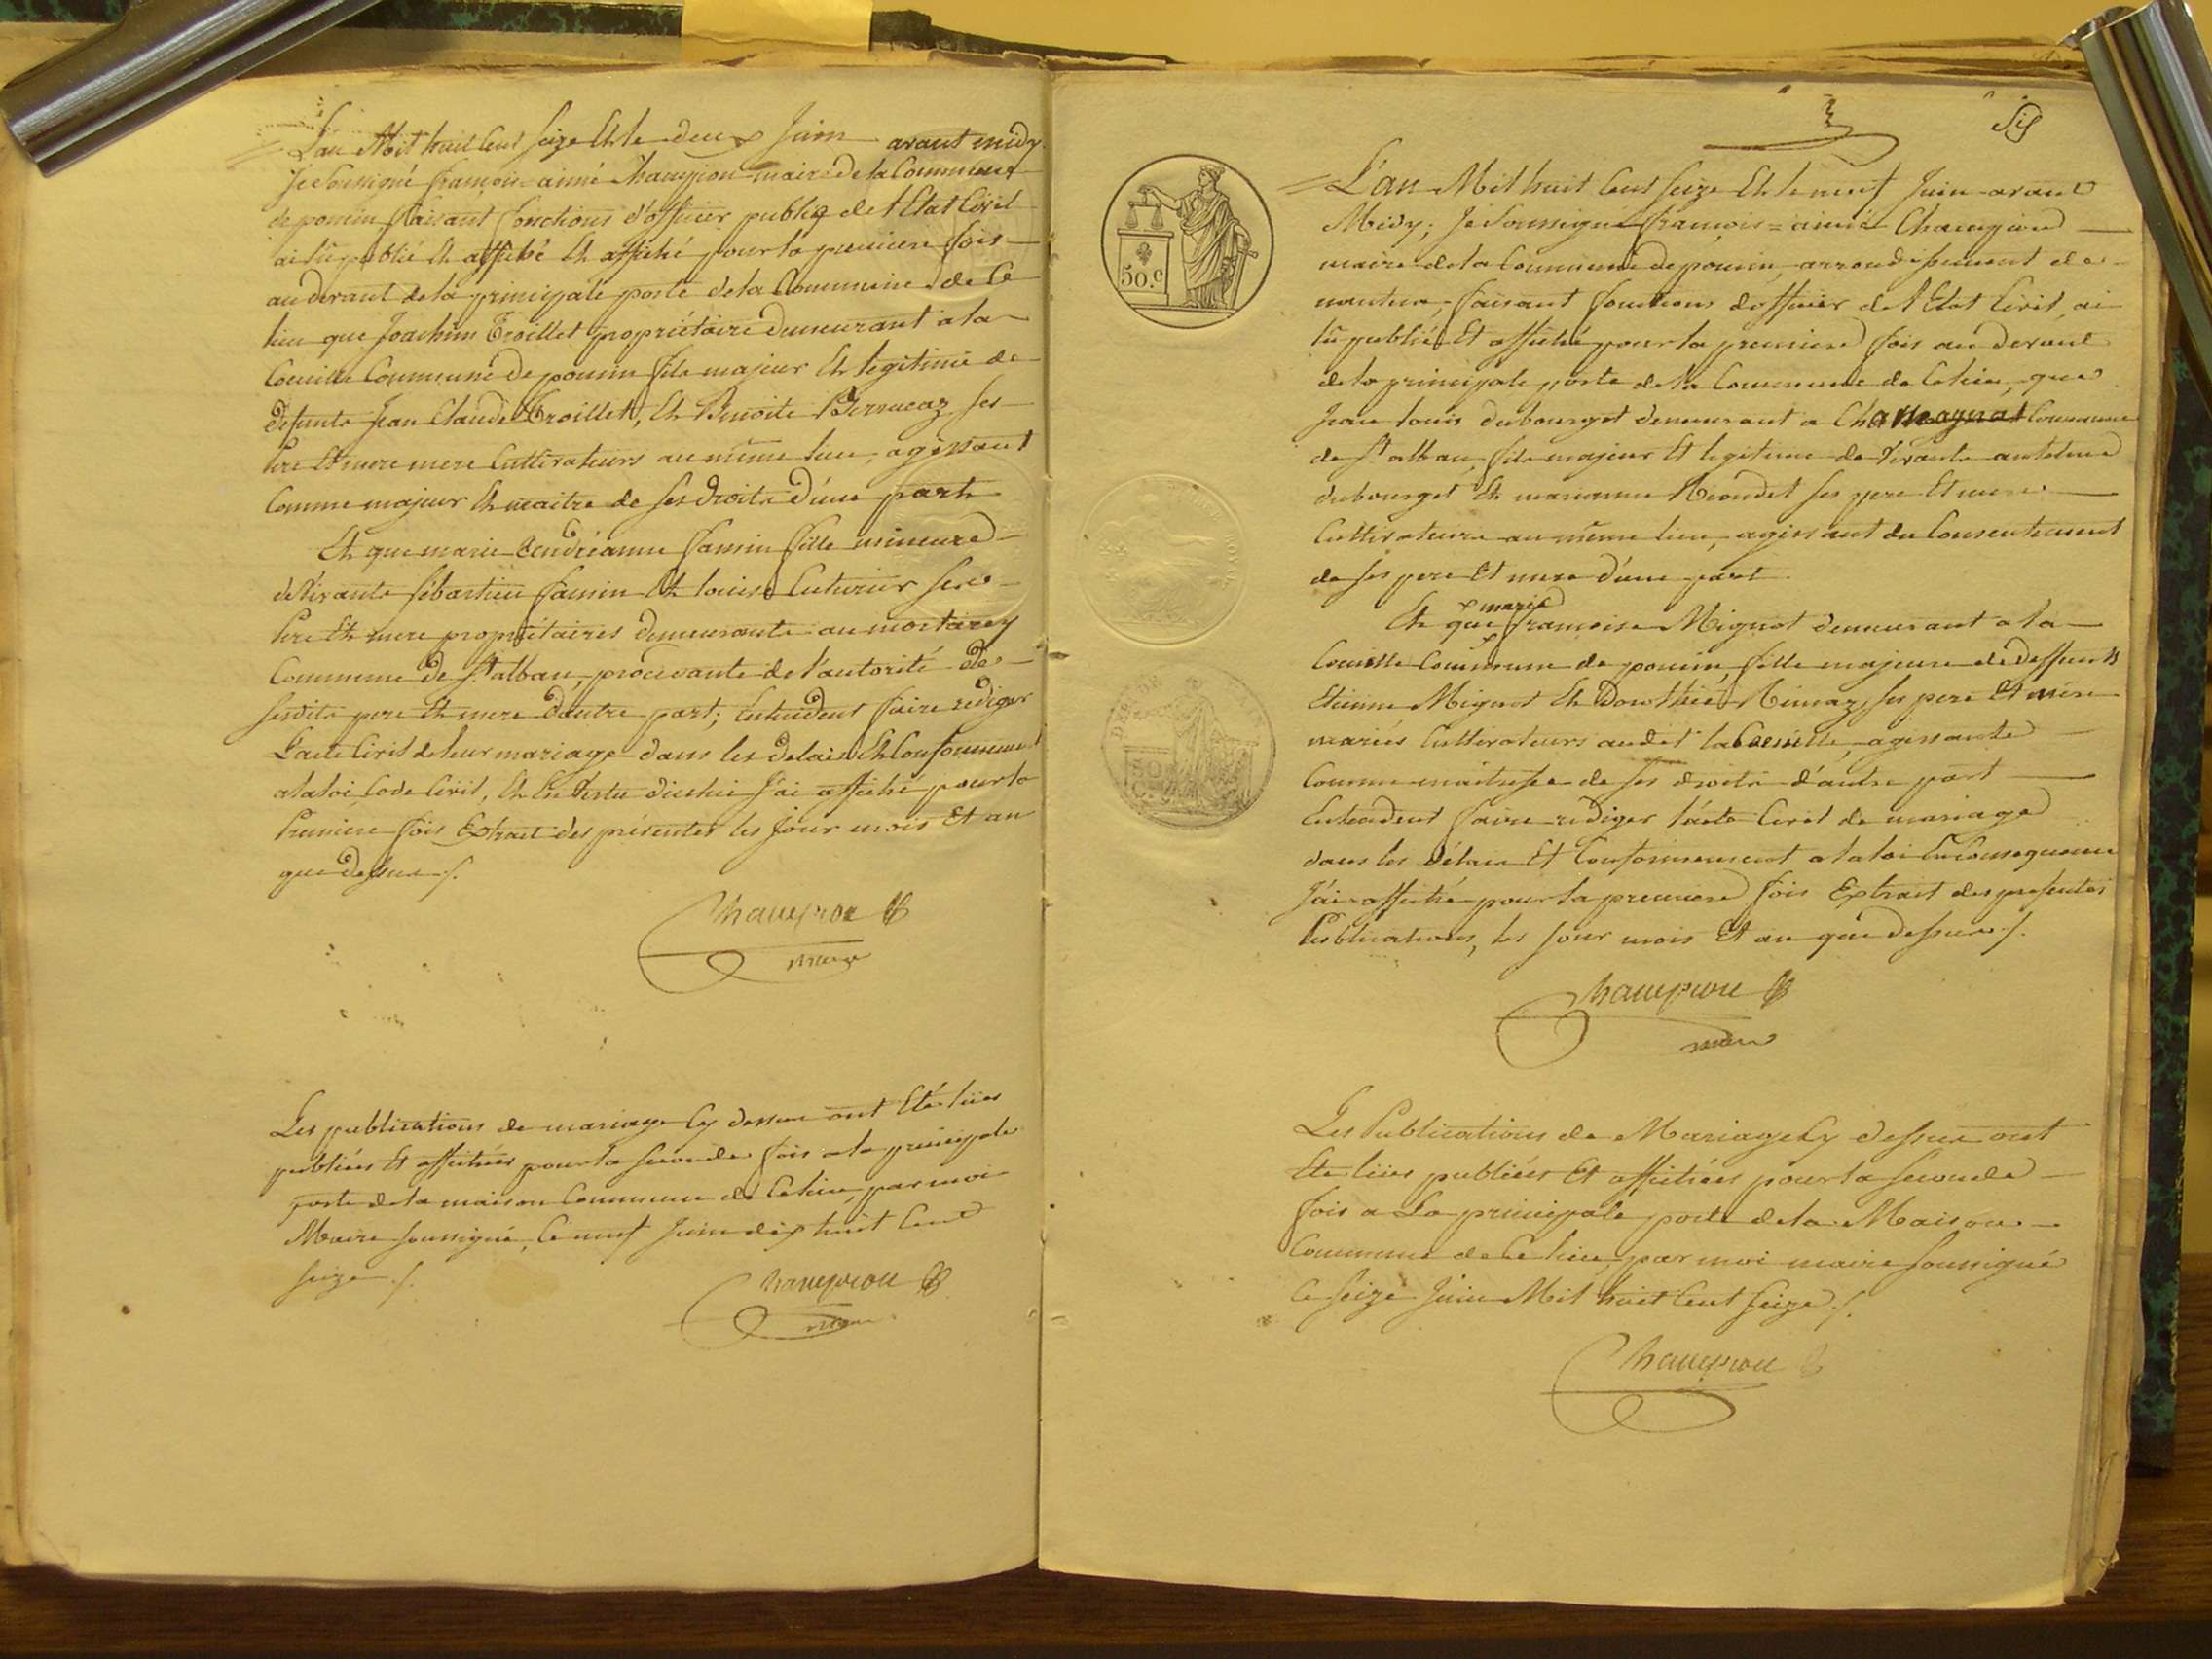 L'an Mil huit Cent seize Et le deux Juin avant midy
Je Soussigné françois=aimé Champion maire de la Commune
de poncin faisant fonctions d'officier public de l'Etat Civil
ai lu publié Et affiché Et affiché pour la premiere fois
au devant de la principale porte de la Commune de Ce
lieu que Joachim Troillet propriétaire demeurant a la
Coeuille Commune de poncin fils majeur Et legitime de
defunts Jean Claude Troillet, Et Benoite Berrucaz ses
Pere Et mere mere Cultivateurs au même lieu, agissant
Comme majeur Et maitre de ses droits d'une part
Et que marie fille mineure
de vivants sébastien Et louise Cuturier ses
Pere Et mere propriétaires demeurants au mortarey
Commune de St. alban, procédante de l'autorité de
sesdits pere Et mere d'autre part; Entendent faire rediger
L'acte Civil de leur mariage dans les delais Et Conformement
a la loi Code Civil, Et En Vertu d'icelui J'ai affiché pour la
Premiere fois Extrait des présentes les Jour mois Et an
que dessus ./.
Champion
maire
Les publications de mariage Cy dessus ont Eté luës
publiées Et affichées pour la seconde fois a la principale
porte de la maison Commune de Ce lieu, par moi
Maire soussigné, Ce neuf Juin dix huit Cent
seize ./.
Champion
maire
L'an Mil huit Cent seize Et le neuf Juin avant
Midy; Je Soussigné françois=aimé Champion
maire de la Commune de poncin, arrondissement de
nantua, faisant fonctions d'officier de l'Etat Civil, ai
lu publié Et affiché pour la premiere fois au devant
de la principale porte de la Commune de Ce lieu, que
50.c
Jean louis dubourget demeurant a Commune
de St. alban, fils majeur Et legitime de vivants antelme
dubourget Et marianne Riondet ses pere Et mere
Cultivateurs au même lieu, agissant du Consentement
de ses pere Et mere d'une part.
marie
Et que françoise Mignot demeurant a la
Coeuille Commune de poncin, fille majeure de deffunts
Etienne Mignot Et Dorothée ses pere Et mere
mariés Cultivateurs audit la Coeuille, agissante
Comme maitresse de ses droits d'autre part
Entendent faire rediger l'acte Civil de mariage
dans les délais Et Conformement a la loi En Consequence
J'ai affiché pour la premiere fois Extrait des presentes
Publications, les Jour mois Et an que dessus ./.
Champion
maire
Les Publications de Mariage Cy dessus ont
Eté luës publiées Et affichées pour la seconde
fois a La principale porte de la Maison
Commune de Ce lieu, par moi maire soussigné
Ce seize Juin Mil huit Cent seize ./.
Champion